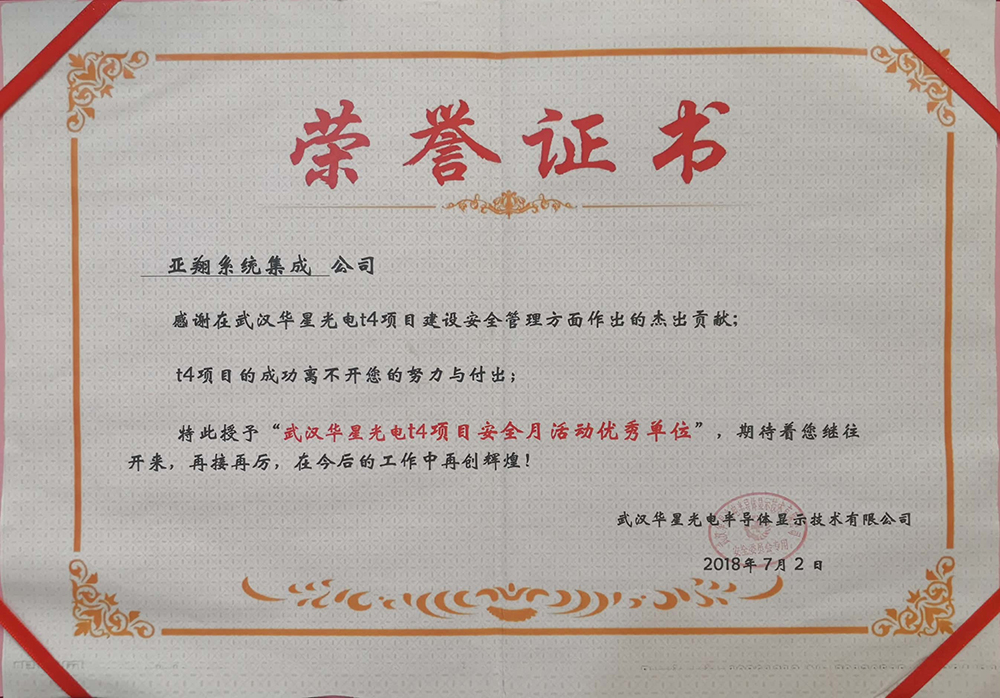 荣誉证书
亚翔系统集成 公司
感谢在武汉华星光电t4项目建设安全管理方面作出的杰出贡献；
t4项目的成功离不开您的努力与付出；
特此授予“武汉华星光电t4项目安全月活动优秀单位”，期待着您继往
开来，再接再厉，在今后的工作中再创辉煌！
武汉华星光电半导体显示技术有限公司
安全委员会专用
2018年7月2日